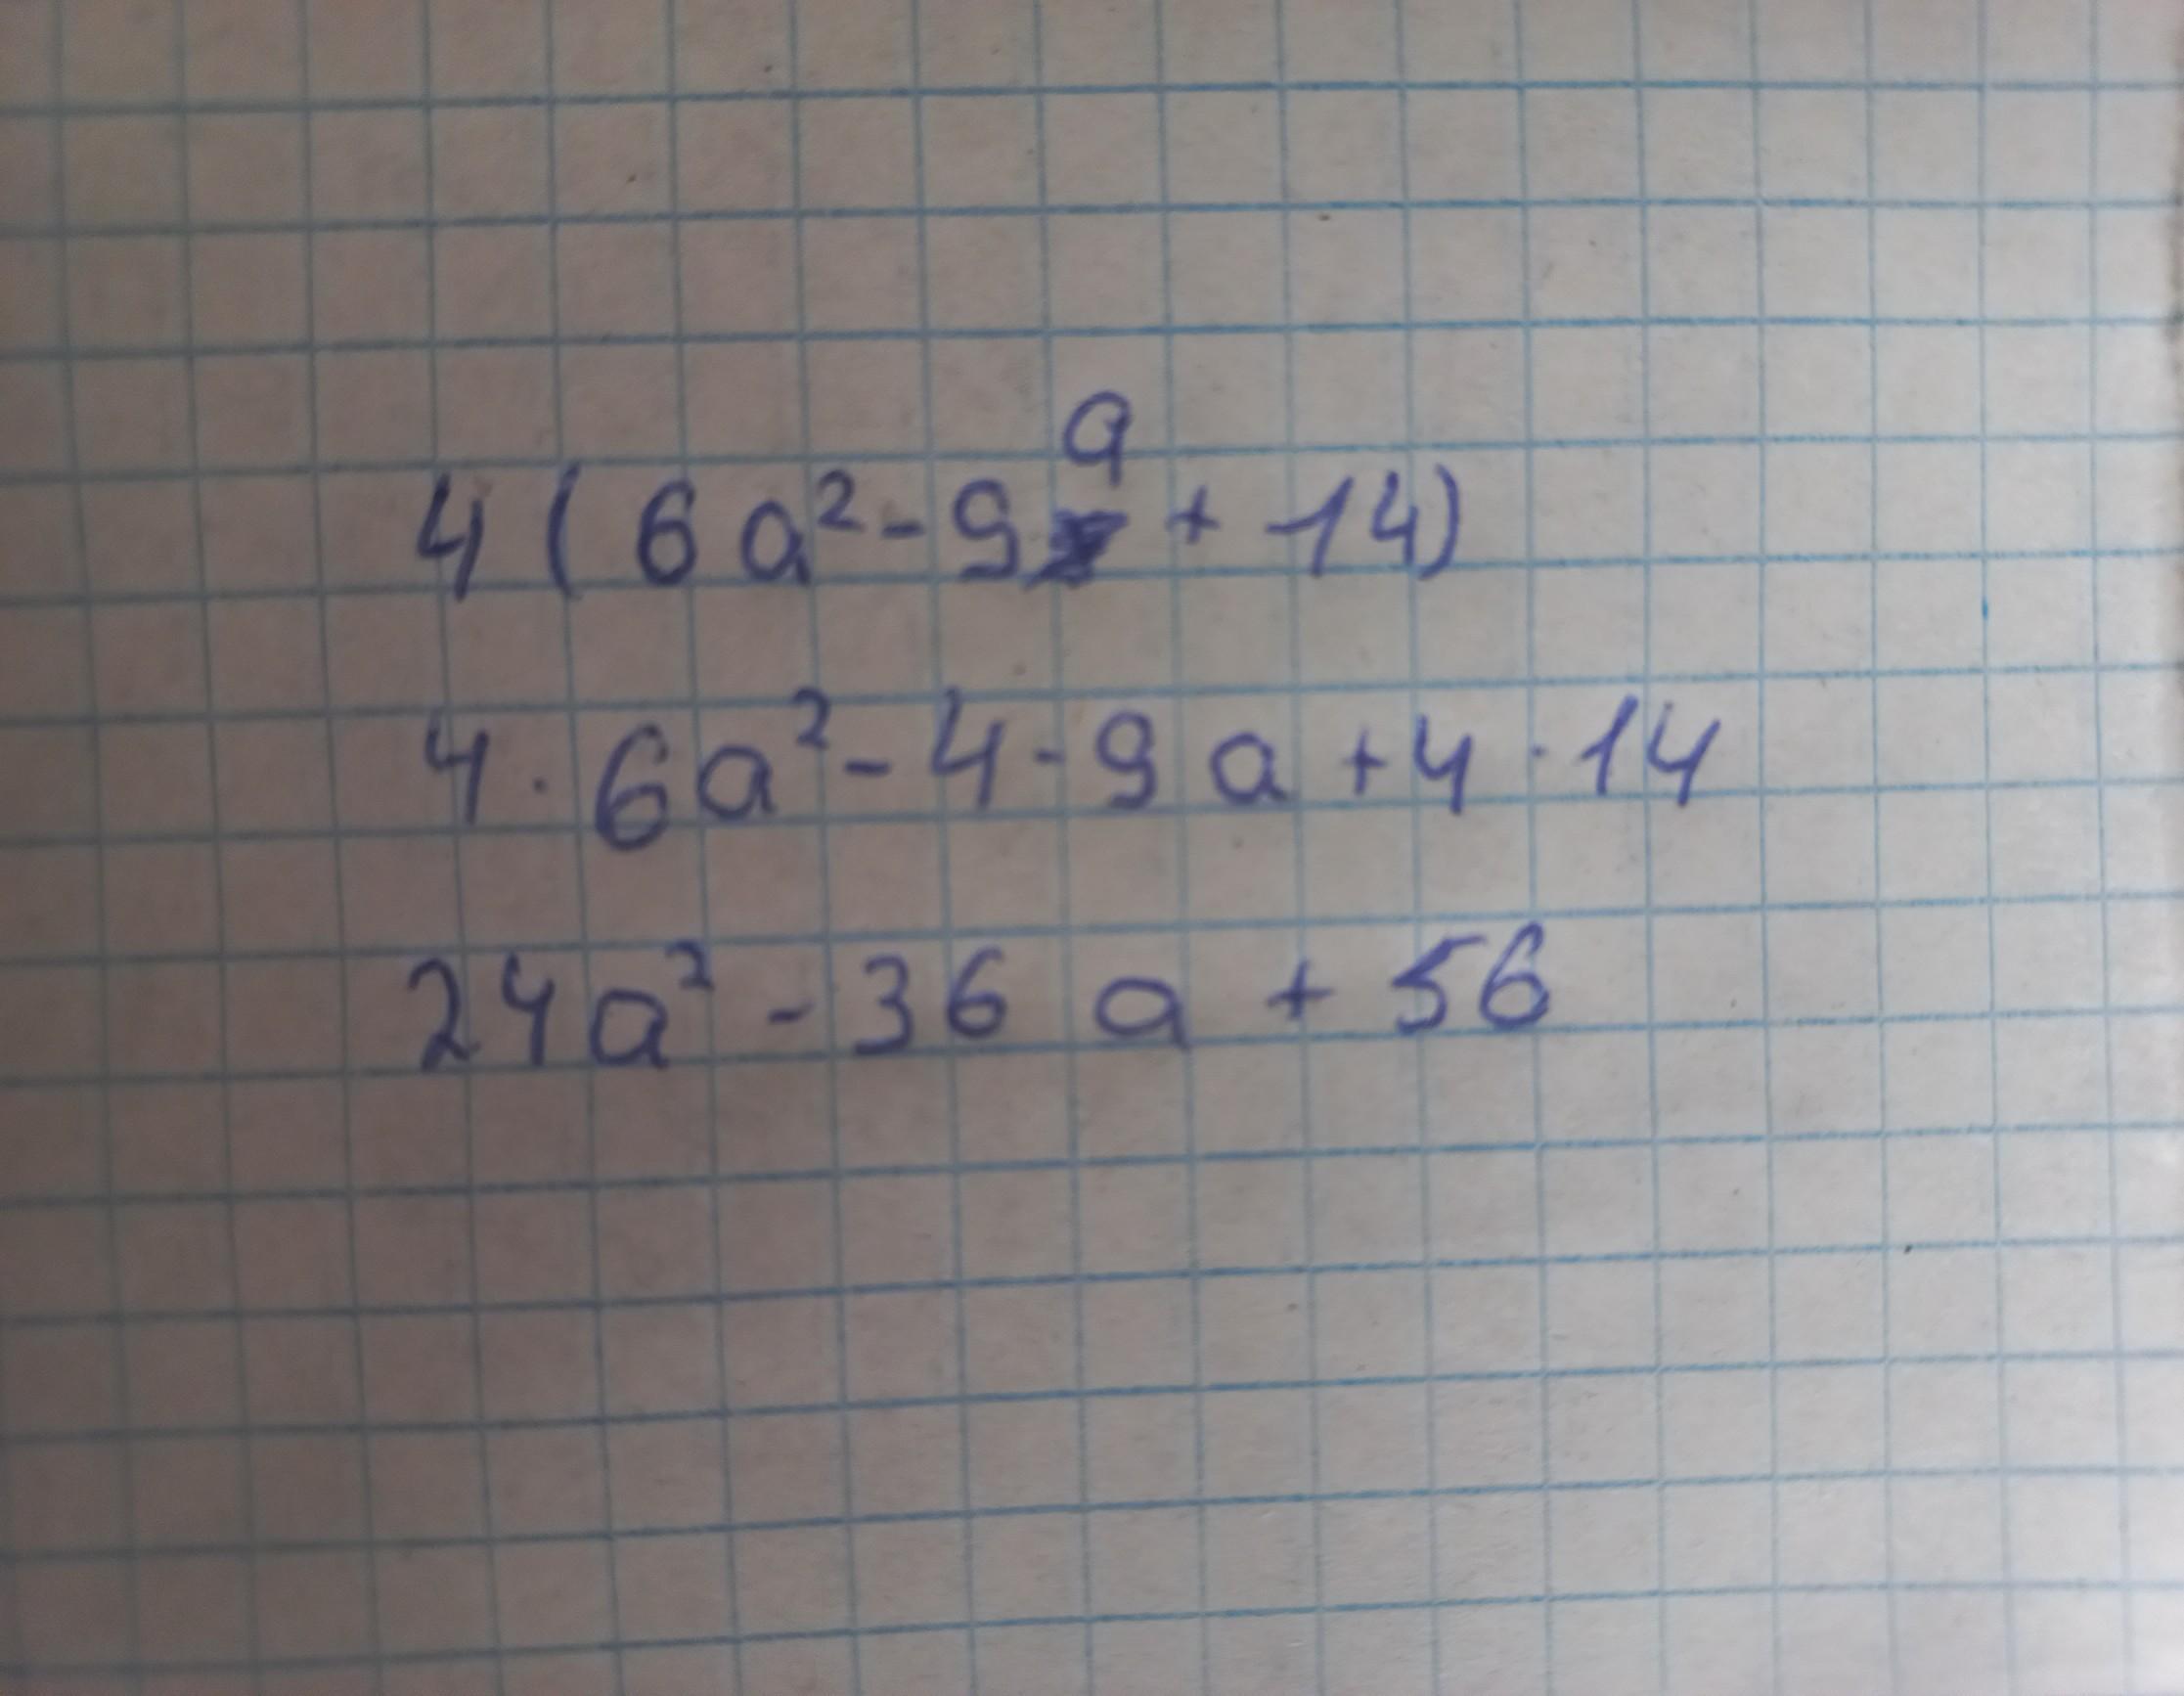 4(6a²-9a+14)
4·6a²-4·9a+4·14
24a²-36a+56